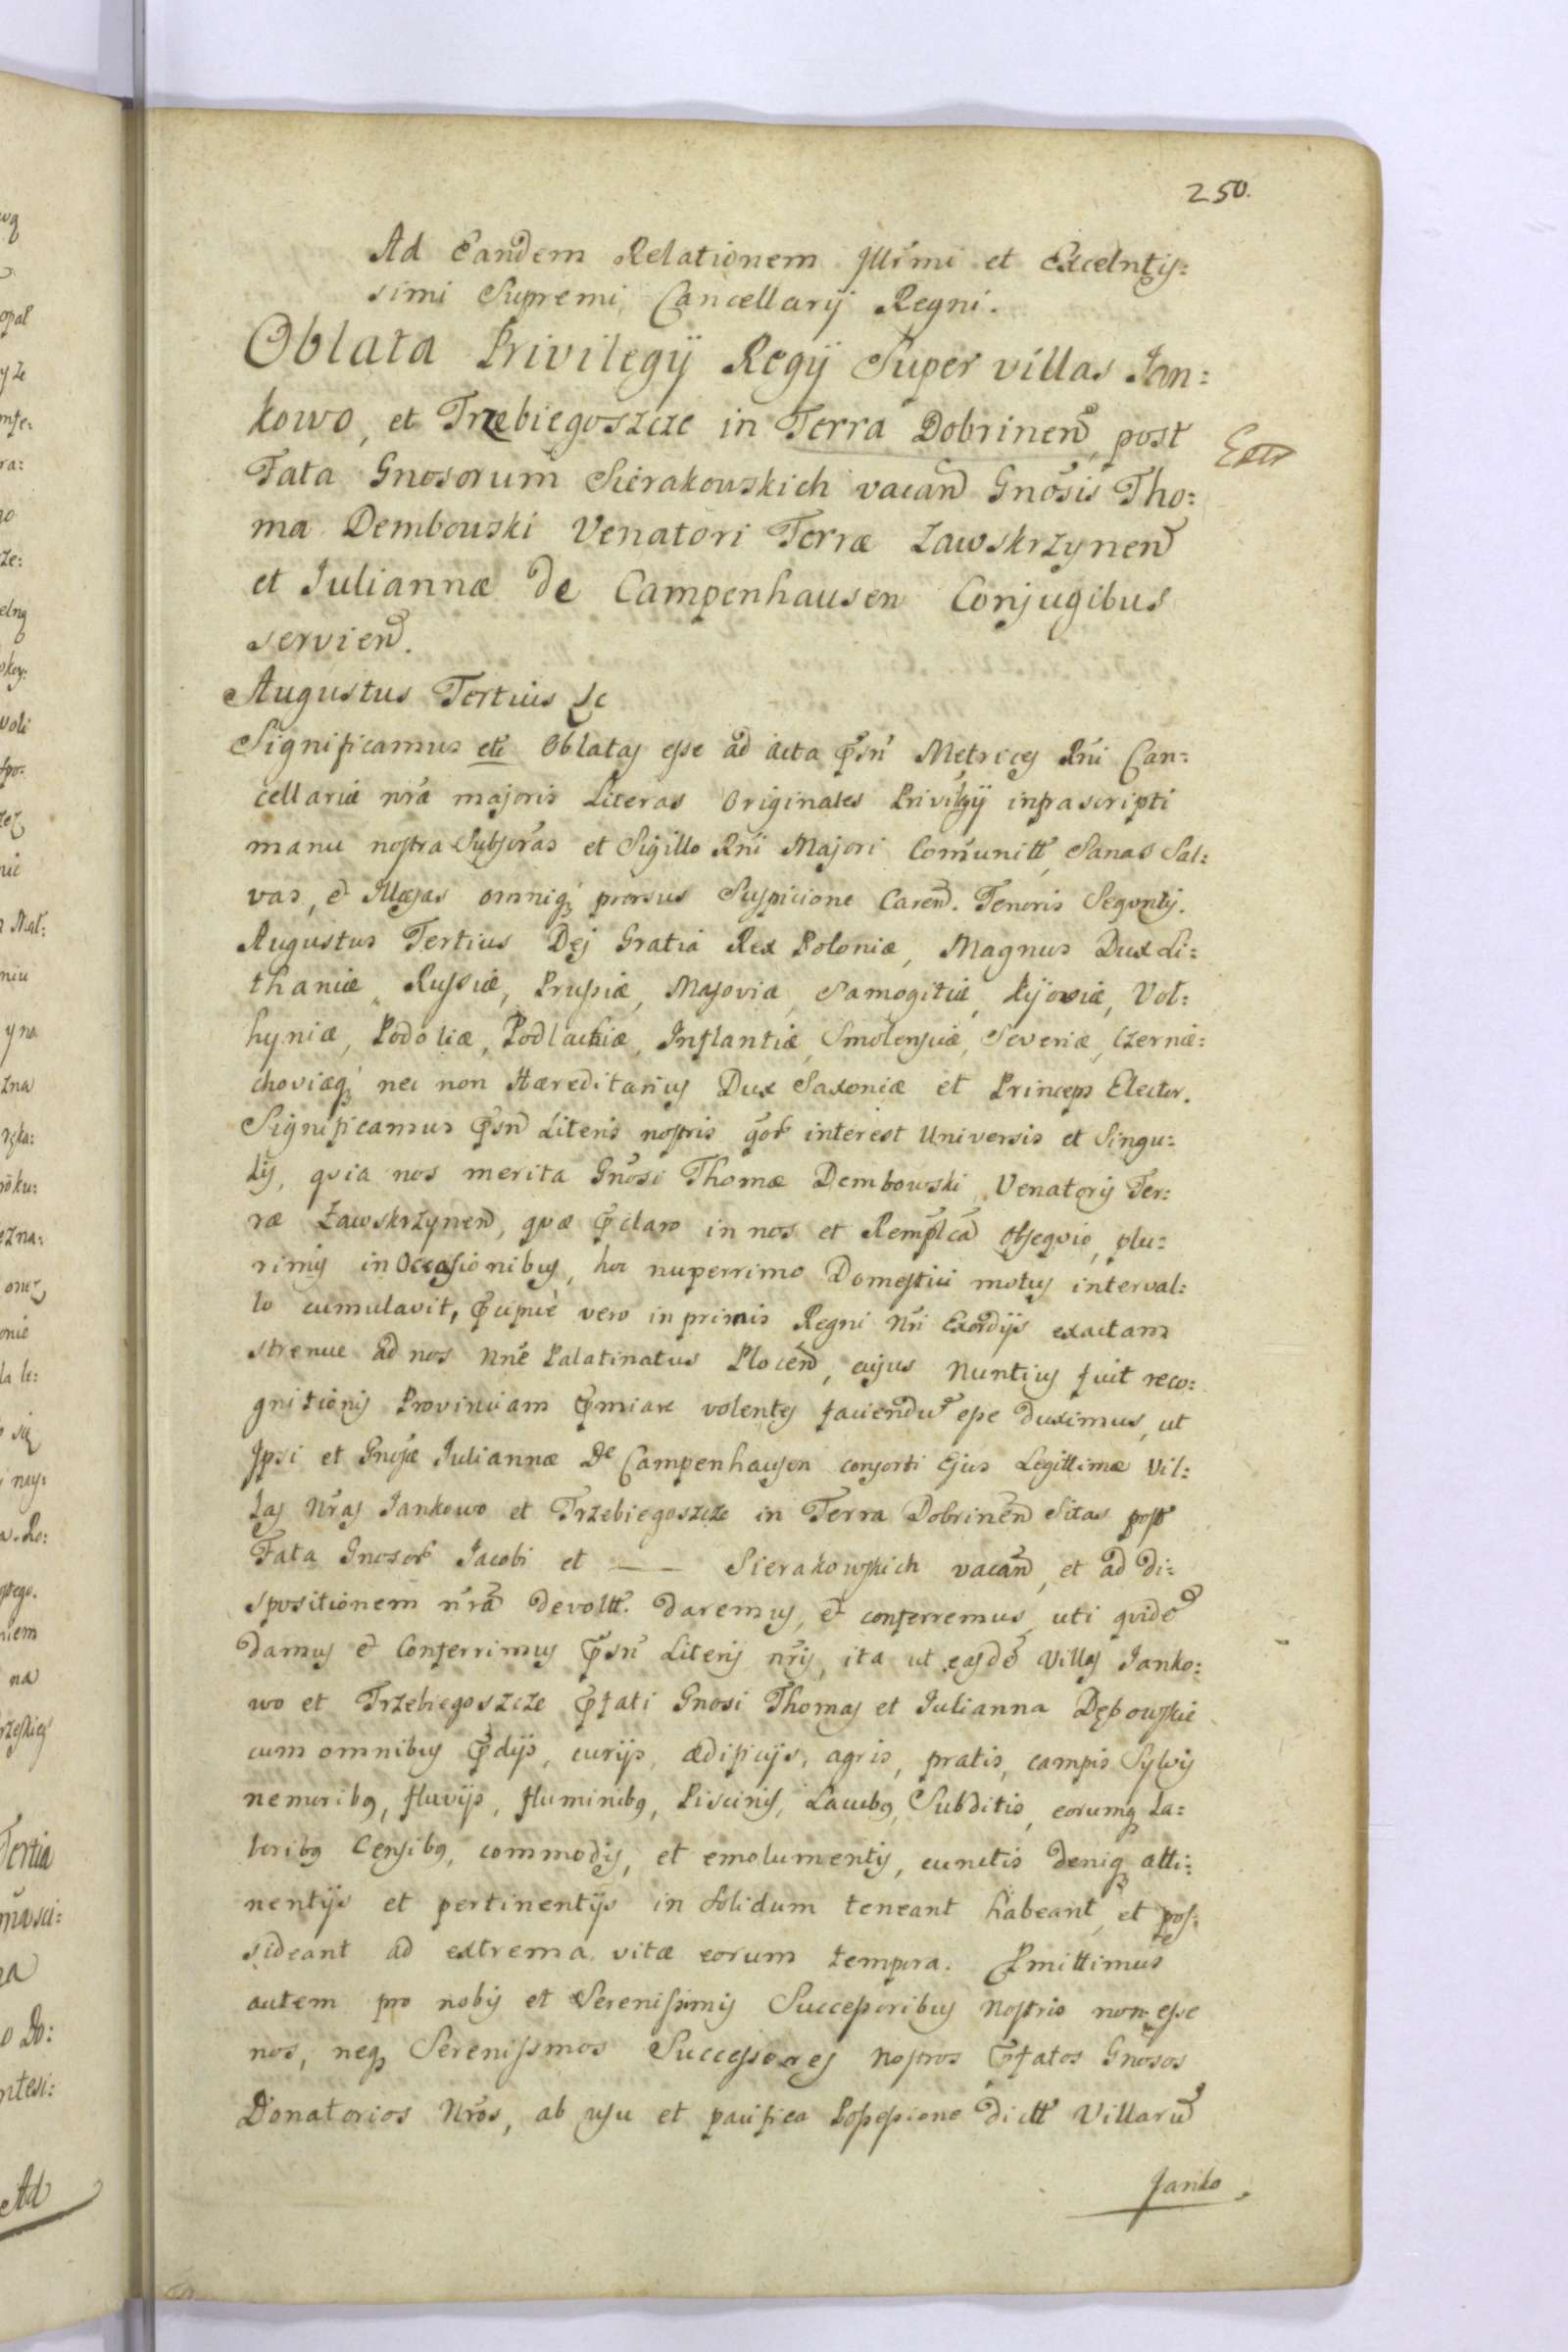 250.
Ad Eandem Relationem Jllr̃mi et Excelntis=
simi Supremi Cancellarij Regni.
Oblata Privilegij Regij Super villas Jan=
kowo, et Trzebiegoszcze in Terra Dobrinen̄ post
Extr
Fata Gnosorum Sierakowskich vacan̄ Gnosis Tho=
ma Dembowski Venatori Terræ Zawskrzynen̄
et Juliannæ de Campenhausen Conjugibus
servien̄.
Augustus Tertius &c
Significamus etc Oblatas esse ad acta p̄sn̄ Metrices Rñi Can=
cellariæ nr̃æ majoris Literas Originales Privilgij infrascripti
manu nostra Subscr̃as et Sigillo Rñi Majori Com̃unitt Sanas Sal=
vas, et Illæsas omniq; prorsus Suspicione Caren̄. Tenoris Seqvntis.
Augustus Tertius Dej Gratia Rex Poloniæ, Magnus Dux Li=
thaniæ Russiæ, Prussiæ, Masoviæ, Samogitiæ, Kijoviæ, Vol=
hyniæ, Podoliæ, Podlachiæ, Inflantiæ, Smolensciæ, Severiæ, Czernie=
choviæq; nec non Hæreditarius Dux Saxoniæ et Princeps Elector.
Significamus p̄sn̄ Literis nostris qor̃ interest Universis et Singu=
lis, qvia nos merita Gnosi Thomæ Dembowski Venatoris Ter=
ræ Zawskrzynen̄, qvæ p̄claro in nos et Remp̃lca̅ obseqvio, plu=
rimis in Occasionibus, hoc nuperrimo Domestici motus interval=
lo cumulavit, p̄cipuè vero in primis Regni Nri Exordijs exactam
strenue ad nos Nñe Palatinatus Plocen̄, cujus Nuntius fuit reco=
gnitionis Provinciam p̄miare volentes faciendu̅ esse duximus, ut
Ipsi et Gnosæ Juliannæ De Campenhausen consorti Ejus Legittimæ Vil=
las Nr̃as Jankowo et Trzebiegoszcze in Terra Dobrinen̄ Sitas post
Fata Gnosor̃ Jacobi et —— Sierakowskich vacan̄, et ad di=
spositionem nr̃a̅ devoltt. daremus, et conferremus, uti qvide̅
damus et Conferrimus p̄sn̄ Literis nr̃is, ita ut easde̅ Villas Janko=
wo et Trzebiegoszcze p̄fati Gnosi Thomas et Julianna Dębowskie
cum omnibus p̄dijs, curijs, ædificijs, agris, pratis, campis Sylvis
nemoribq, fluvijs, fluminibq, Piscinis, Lacubq, Subditis, eorumq La=
boribq Censibq, commodis, et emolumentis, cunctis deniq; atti=
nentijs et pertinentijs in Solidum teneant habeant, et pos=
sideant ad extrema vitæ eorum tempora. Pmittimus
autem pro nobis et Serenissimis Successoribus Nostris non esse
nos, neq; Serenissmos Successores Nostros p̄fatos Gnosos
Donatorios Nr̃os, ab usu et pacifica Possessione dictt Villaru̅
Janko